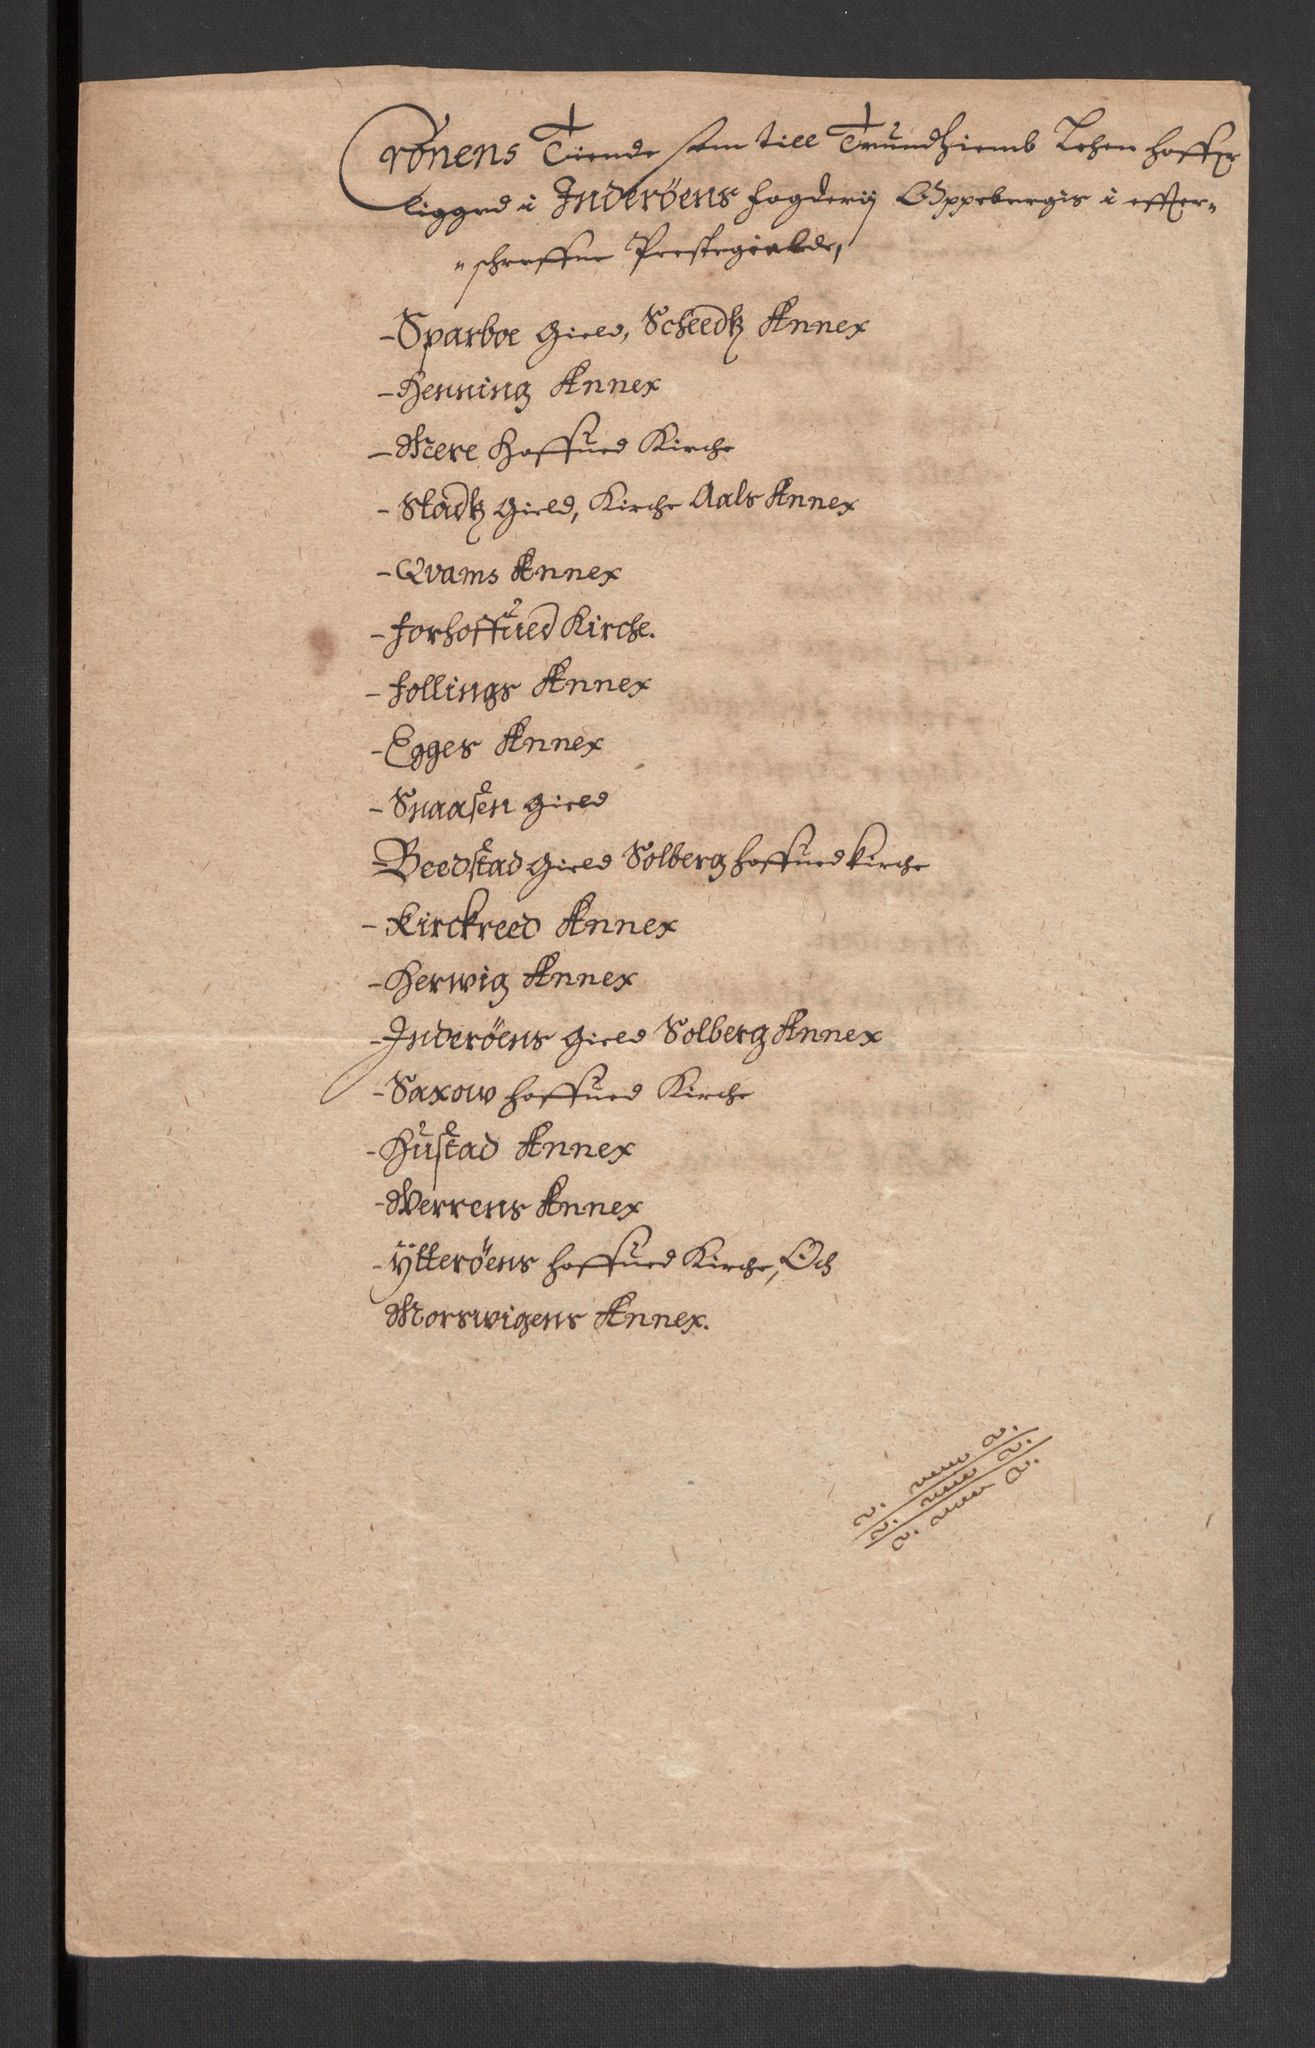 Cronens Tiende som till Trundhiemb Lehen haffer
ligged i Inderöens fogderij Oppebergis i effter-
schreffne Prestegielde,
- Sparboe Gield, Scheedtz Annex
- Henning Annex
- Mere Hoffued Kirche
- Stadtz Gield, Kirche Aals Annex
- Qvams Annex
- Forhoffued Kirche.
- Follings Annex
- Egges Annex
- Snaasen Gield
- Beedstad Gield Solberg hoffued kirche
- Kirckreed Annex
- Herwig Annex
- Inderöens Gield Solberg Annex
- Saxow hoffued Kirche
- Hustad Annex
- Werrens Annex
- Ytteröens hoffued Kirche, Och
Morswigens Annex.